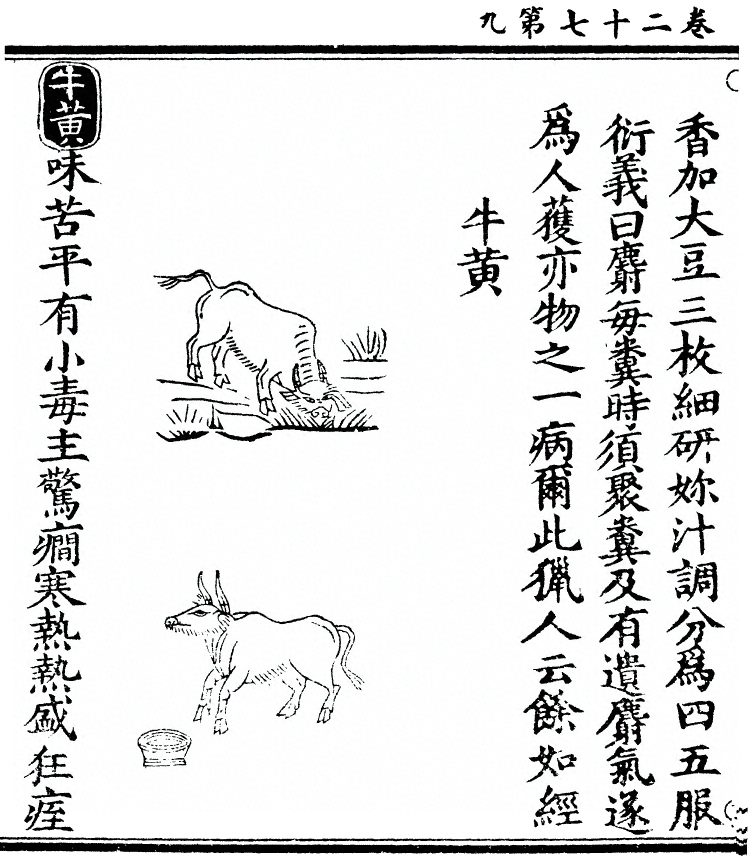 卷二十七第九
香加大豆三枚細研妳汁調分爲四五服
衍義曰麝每糞時須聚糞及有遺麝氣遂
爲人獲亦物之一病爾此獵人云餘如經
牛黄
牛黄味苦平有小毒主驚癇寒熱熱盛狂痓